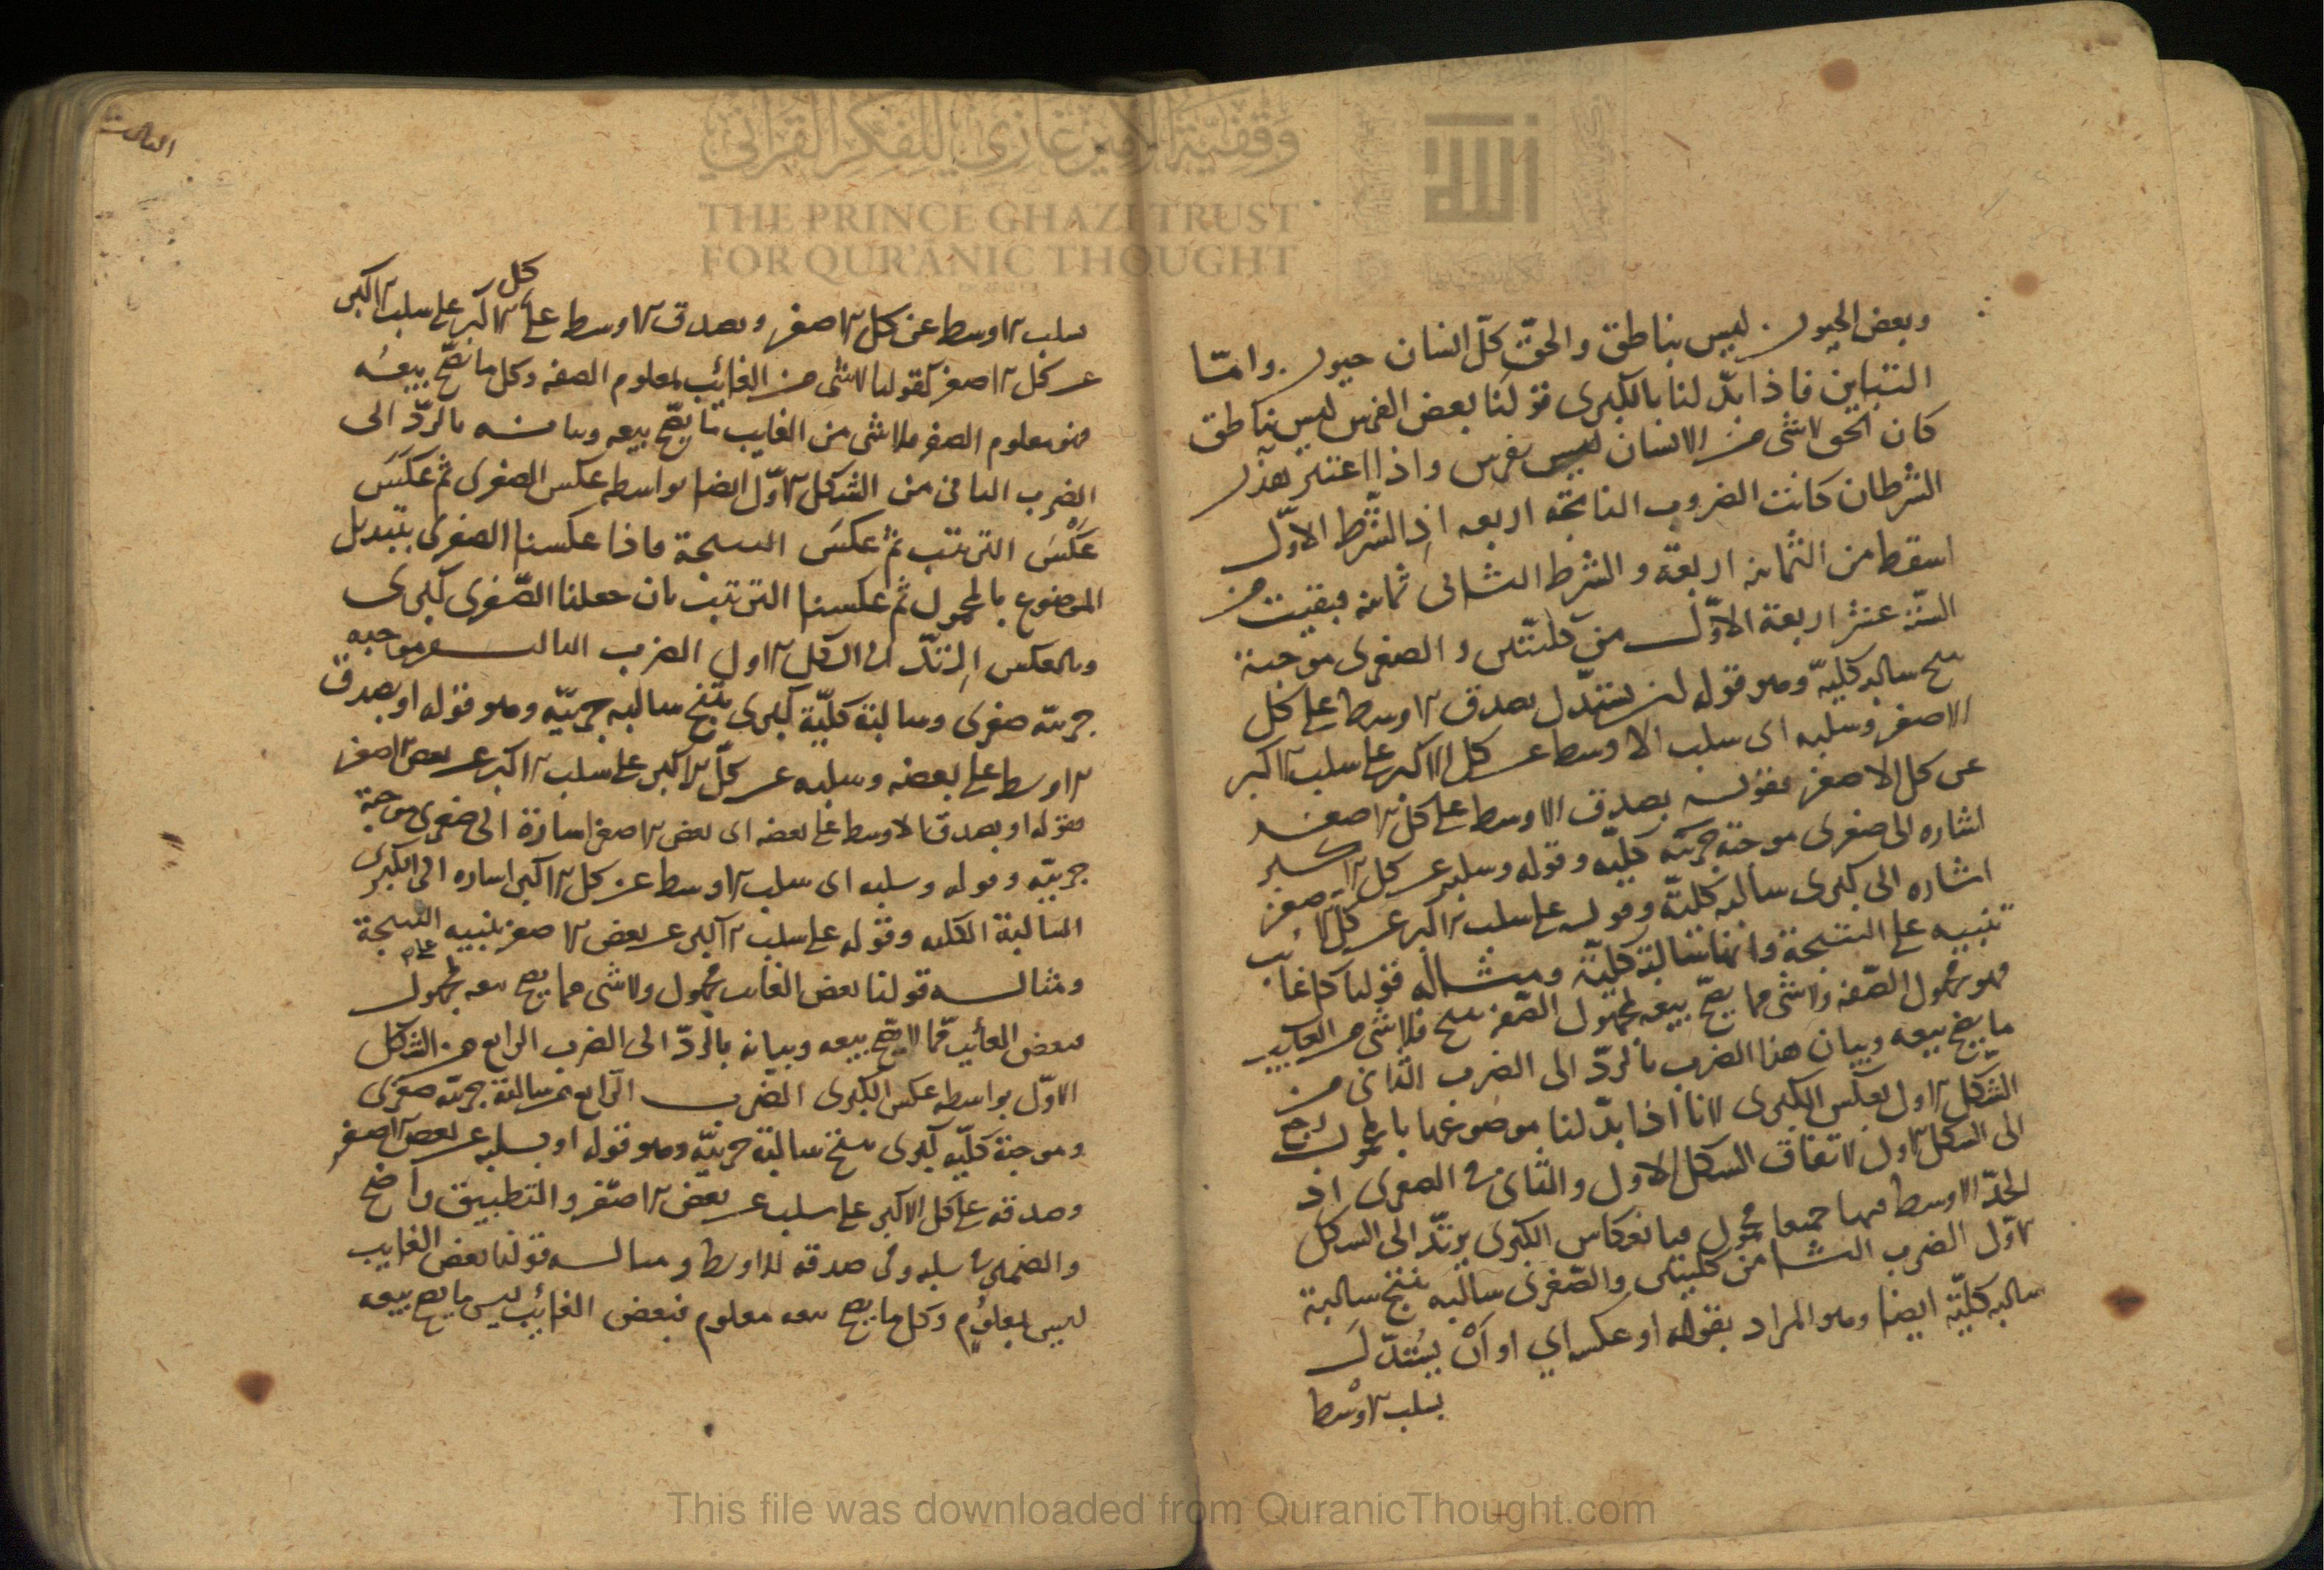 وبعض الحيوان ليس بناطق والحق كل انسان حيوان واما
التباين فاذا بدل لنا بالكبرى قولنا بعض الفرس ليس بناطق
كان الحق لا شى من الانسان ليس بفرس واذا اعتبر هذان
الشرطان كانت الضروب الناتجة اربعه اذ الشرط الاول
اسقط من الثمانيه اربعة والشرط الثانى ثمانيه فبقيت من
الستة عشر اربعة الاول من كليتين والصغرى موجبة
ينتج سالبة كلية وهو قوله ان يستدل بصدق الاوسط على كل
الاصغر وسلبه اى سلب الاوسط عن كل الاكبر على سلب الاكبر
عن كل الاصغر فقوله بصدق الاوسط على كل الاصغر
اشاره الى صغرى موجبة كليه وقوله وسلبه عن كل الاكبر
اشاره الى كبرى سالبه كلية وقوله على سلب الاكبر عن كل الاصغر
تنبيه على النتيجة وانها سالبة كلية ومثاله قولنا كل غائب
فهو مجهول الصفه ولا شى مما يصح بيعه بمجهول الصفه ينتج فلا شى من الغايب
ما يصح بيعه وبيان هذا الضرب بالرد الى الضرب الثانى من
الشكل الاول بعكس الكبرى لانا اذا بدلنا موضوعها بالمحمول رجع
الى الشكل الاول لاتفاق الشكل الاول والثانى فى الصغرى اذ
الحد الاوسط فيهما جميعا محمول فبانعكاس الكبرى يرتد الى الشكل
الاول الضرب الثانى من كليتين والصغرى سالبه ينتج سالبة
سالبه كلية ايضا وهو المراد بقوله او عكسه اي او ان يستدل
بسلب الاوسط
الثالث
كل
بسلب الاوسط عن كل الاصغر وبصدق الاوسط على الاكبر على سلب الاكبر
عن كل الاصغر كقولنا لا شى من الغائب بمعلوم الصفه وكل ما يصح بيعه
فهو معلوم الصفه فلا شى من الغايب ما يصح بيعه وبيانه بالرد الى
الضرب الثانى من الشكل الاول ايضا بواسطه عكس الصغرى ثم عكس
عكس الترتيب ثم عكس النتيجة فاذا عكسنا الصغرى بتبديل
الموضوع بالمحمول ثم عكسنا الترتيب بان جعلنا الصغرى كبرى
وبالعكس ارتد الى الشكل الاول الضرب الثالث من موجبه
جزئية صغرى وسالبة كلية كبرى ينتج سالبه جزئية وهو قوله او بصدق
الاوسط على بعضه وسلبه عن كل الاكبر على سلب الاكبر عن بعض الاصغر
فقوله او بصدق الاوسط على بعضه اى بعض الاصغر اشارة الى صغرى موجبة
جزئية وقوله وسلبه اى سلب الاوسط عن كل الاكبر اشاره الى الكبرى
السالبة الكليه وقوله على سلب الاكبر عن بعض الاصغر تنبيه النتيجة
على
ومثاله قولنا بعض الغايب مجهول ولا شى مما يصح بيعه بمجهول
فبعض الغائب مما لا يصح بيعه وبيانه بالرد الى الضرب الرابع من الشكل
الاول بواسطه عكس الكبرى الضرب الرابع من سالبة جزئية صغرى
وموجبة كليه كبرى ينتج سالبة جزئية وهو قوله او بسلبه عن بعض الاصغر
وصدقه على كل الاكبر على سلبه عن بعض الاصغر والتطبيق واضح
والضمير فى سلبه وفى صدقه للاوسط ومثاله قولنا بعض الغايب
ليس بمعلوم وكل ما يصح بيعه معلوم فبعض الغائب ليس ما يصح بيعه
وقفية الأمير غازي للفكر القرآني
THE PRINCE GHAZI TRUST
FOR QUR'ĀNIC THOUGHT
الله
This file was downloaded from QuranicThought.com